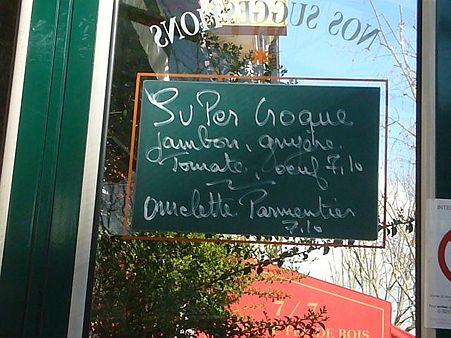 NOS SUGGESTIONS
NOS SUG
SuPer Croque
Jambon, gruyère.
Tomate, oeuf 7,10
Omelette Parmentier
7,10
7/7
DE BOIS